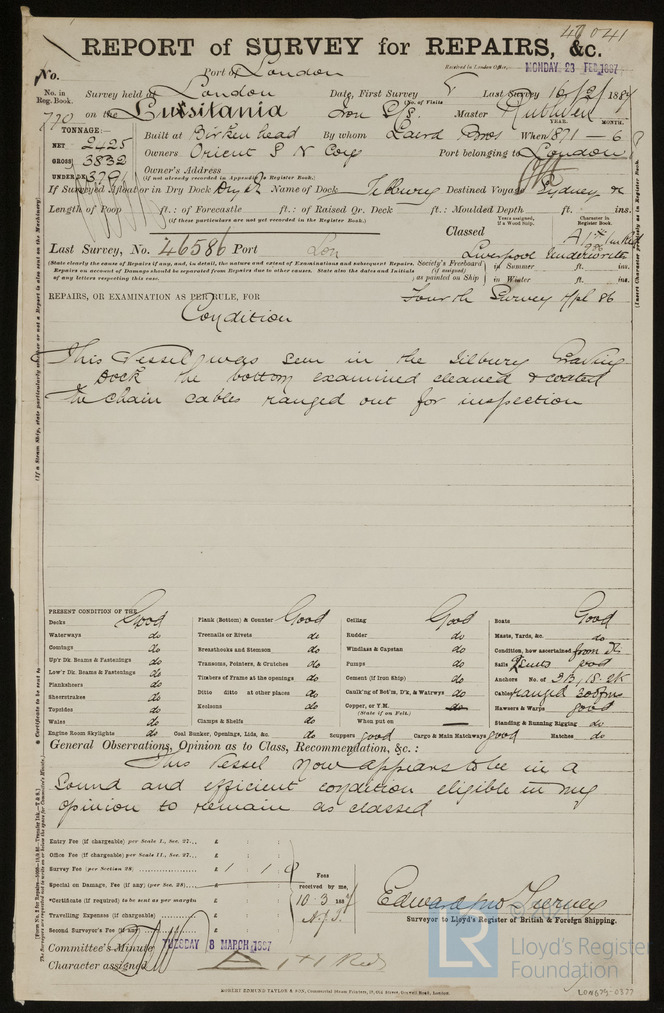 47041
REPORT of SURVEY for REPAIRS, &c.
No. Port of London Received in London Office, MONDAY 23 FEB 1887
No. in Reg. Book. Survey held at London Date, First Survey Last Survey 16/2/1887
770 on the Lusitania Iron S/S. No. of Visits Master Ruthven
TONNAGE:— YEAR. MONTH.
NET 2425 Built at Birkenhead By whom Laird Bros When 1871 – 6
GROSS 3832 Owners Orient S N Coy Port belonging to London
UNDER DK 3791 Owner's Address
(if not already recorded in Appendix to Register Book.)
If Surveyed Afloat or in Dry Dock Dry Dk Name of Dock Tilbury Destined Voyage Sydney &c
Length of Poop ft.: of Forecastle ft.: of Raised Qr. Deck ft.: Moulded Depth ft. ins.
(if these particulars are not yet recorded in the Register Book.) Years assigned, if a Wood Ship. Character in Register Book.
Classed A 1
Last Survey, No. 46586 Port Lon Liverpool Underwrits
(State clearly the cause of Repairs if any, and, in detail, the nature and extent of Examinations and subsequent Repairs. Society's Freeboard (if assigned) as painted on Ship in Summer ft. ins.
Repairs on account of Damage should be separated from Repairs due to other causes. State also the dates and Initials of any letters respecting this case. in Winter ft. ins.
REPAIRS, OR EXAMINATION AS PER RULE, FOR Fourth Survey 86
Condition
This Vessel was seen in the Tilbury Graving
Dock the bottom examined cleaned & coated
The chain cables ranged out for inspection
PRESENT CONDITION OF THE
Decks Good Plank (Bottom) & Counter Good Ceiling Good Boats Good
Waterways do Treenails or Rivets do Rudder do Masts, Yards, &c. do
Comings do Breasthooks and Stemson do Windlass & Capstan do Condition, how ascertained from Dk
Up'r Dk. Beams & Fastenings do Transoms, Pointers, & Crutches do Pumps do Sails 2 suits good
Low'r Dk. Beams & Fastenings do Timbers of Frame at the openings do Cement (if Iron Ship) do Anchors No. of 3 B, 1 S. 2 K
Plankshears do Ditto ditto at other places do Caulk'ng of Bot'm, D'k, & Watrwys do Cables ranged 300 fms
Sheerstrakes do Keelsons do Copper, or Y.M. (State if on Felt.) do Hawsers & Warps good
Topsides do Clamps & Shelfs do When put on — Standing & Running Rigging do
Wales do
Engine Room Skylights do Coal Bunker, Openings, Lids, &c. do Scuppers good Cargo & Main Hatchways good Hatches do
General Observations, Opinion as to Class, Recommendation, &c. :
This Vessel now appears to be in a
sound and efficient condition eligible in my
opinion to remain as classed
Entry Fee (if chargeable) per Scale I., Sec. 27... £
Office Fee (if chargeable) per Scale II., Sec. 27... £
Survey Fee (per Section 28) £ 1 1 0 Fees
Special on Damage, Fee (if any) (per Sec. 28) £ received by me,
*Certificate (if required) to be sent as per margin 10. 3. 1887
Travelling Expenses (if chargeable) £
Second Surveyor's Fee (if any) £
Surveyor to Lloyd's Register of British & Foreign Shipping.
Committee's Minute TUESDAY 8 MARCH 1887
Character assigned
ROBERT EDMUND TAYLOR & SON, Commercial Steam Printers, 19, Old Street, Goswell Road, London.
© 2021
LR
Lloyd's Register
Foundation
LON679-0377